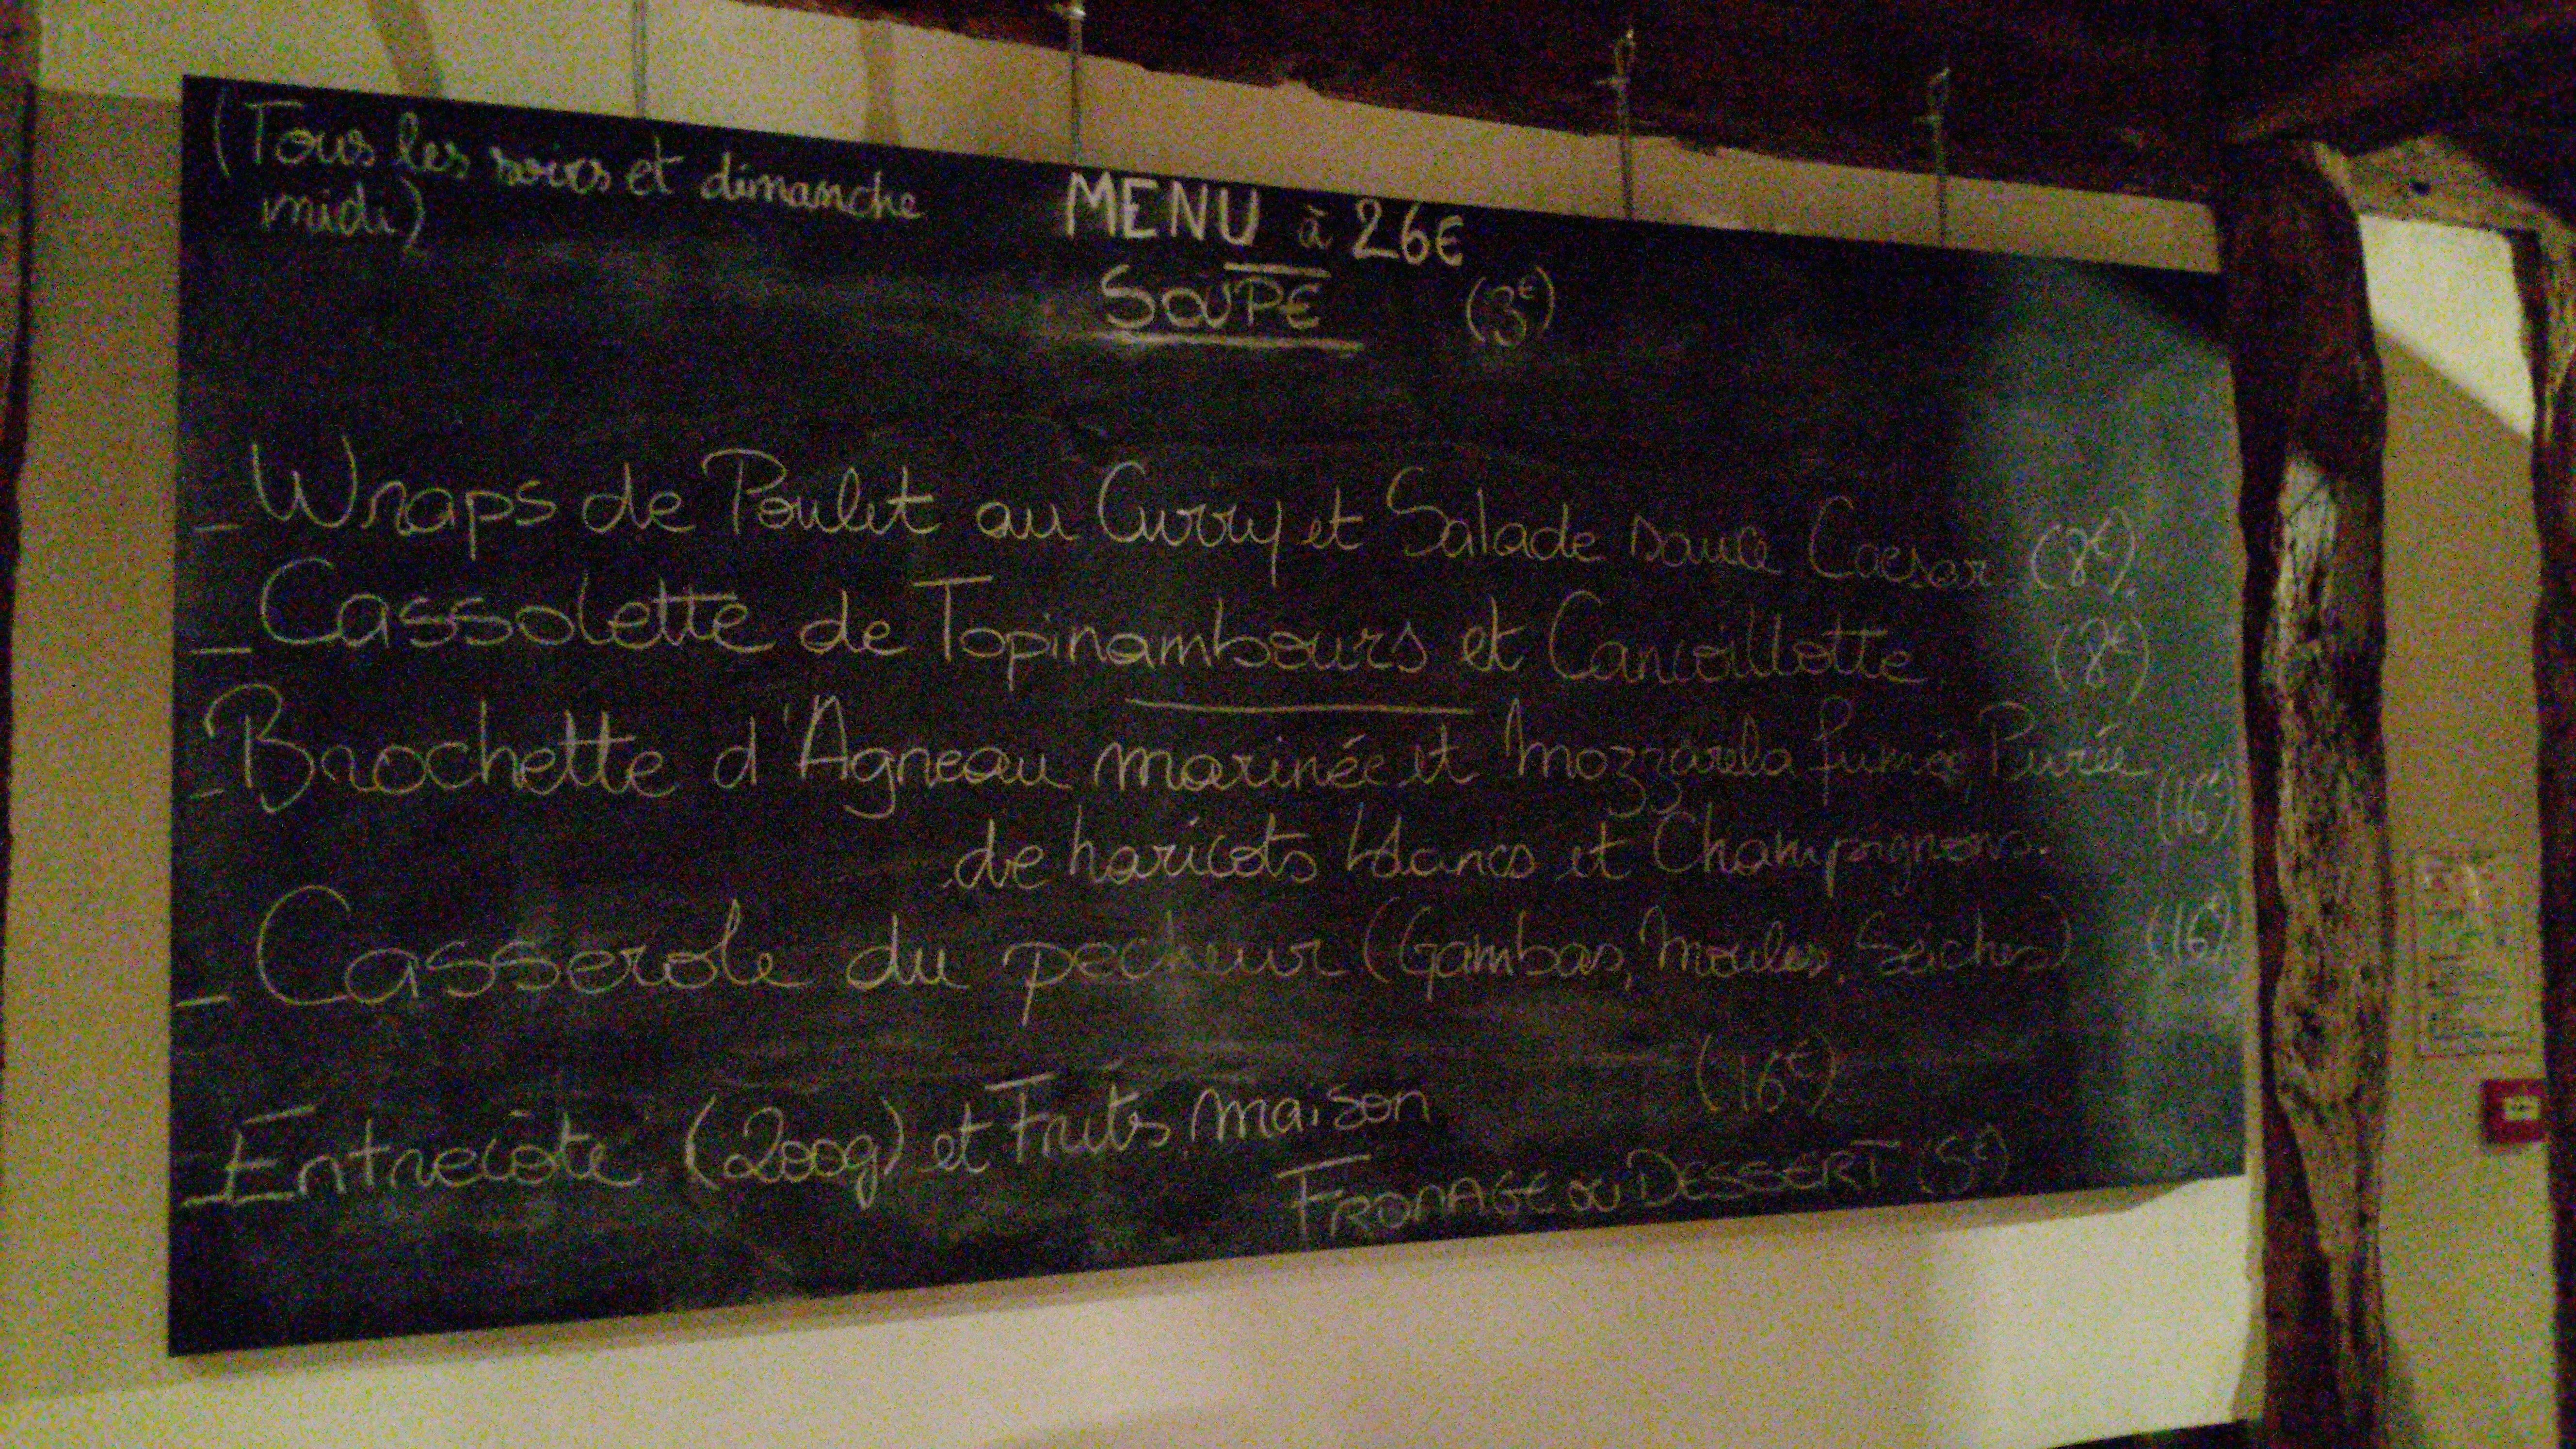 (Tous les soirs et dimanche
midi)
MENU à 26€
SOUPE (3€)
_ Wraps de Poulet au Curry et Salade sauce Caesar (8€)
_ Cassolette de Topinambours et Cancoillotte (8€)
_ Brochette d'Agneau marinée et Mozzarela fumée, Purée
de haricots blancs et Champignons. (16€)
_ Casserole du pecheur (Gambas, Moules, Seiches) (16€)
_ Entrecôte (200g) et Frites maison (16€)
FROMAGE OU DESSERT (5€)